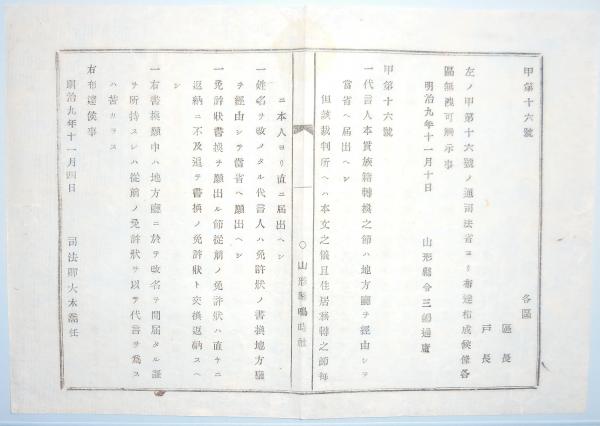 甲第十六號
各區
區長
戸長
左ノ甲第十六號ノ通司法省ヨリ布達相成候條各
區無洩可觸示事
明治九年十一月十日
山形縣令三島通庸
甲第十六號
一代言人本貫族籍轉換之節ハ地方廳ヲ經由シテ
當省ヘ届出ヘシ
但該裁判所ヘハ本文之儀且住居移轉之節毎
ニ本人ヨリ直ニ届出ヘシ
一姓名ヲ改メタル代言人ハ免許狀ノ書換地方廳
ヲ經由シテ當省ヘ願出ヘシ
一免許狀書換ヲ願出ル節從前ノ免許狀ハ直チニ
返納ニ不及追テ書換ノ免許狀ト交換返納スヘ
シ
一右書換願中ハ地方廳ニ於テ改名ヲ聞届タル證
ヲ所持スレハ從前ノ免許狀ヲ以テ代言ヲ爲ス
ハ苦カラス
右布達候事
明治九年十一月四日
司法卿大木喬任
○山形 鳴時社